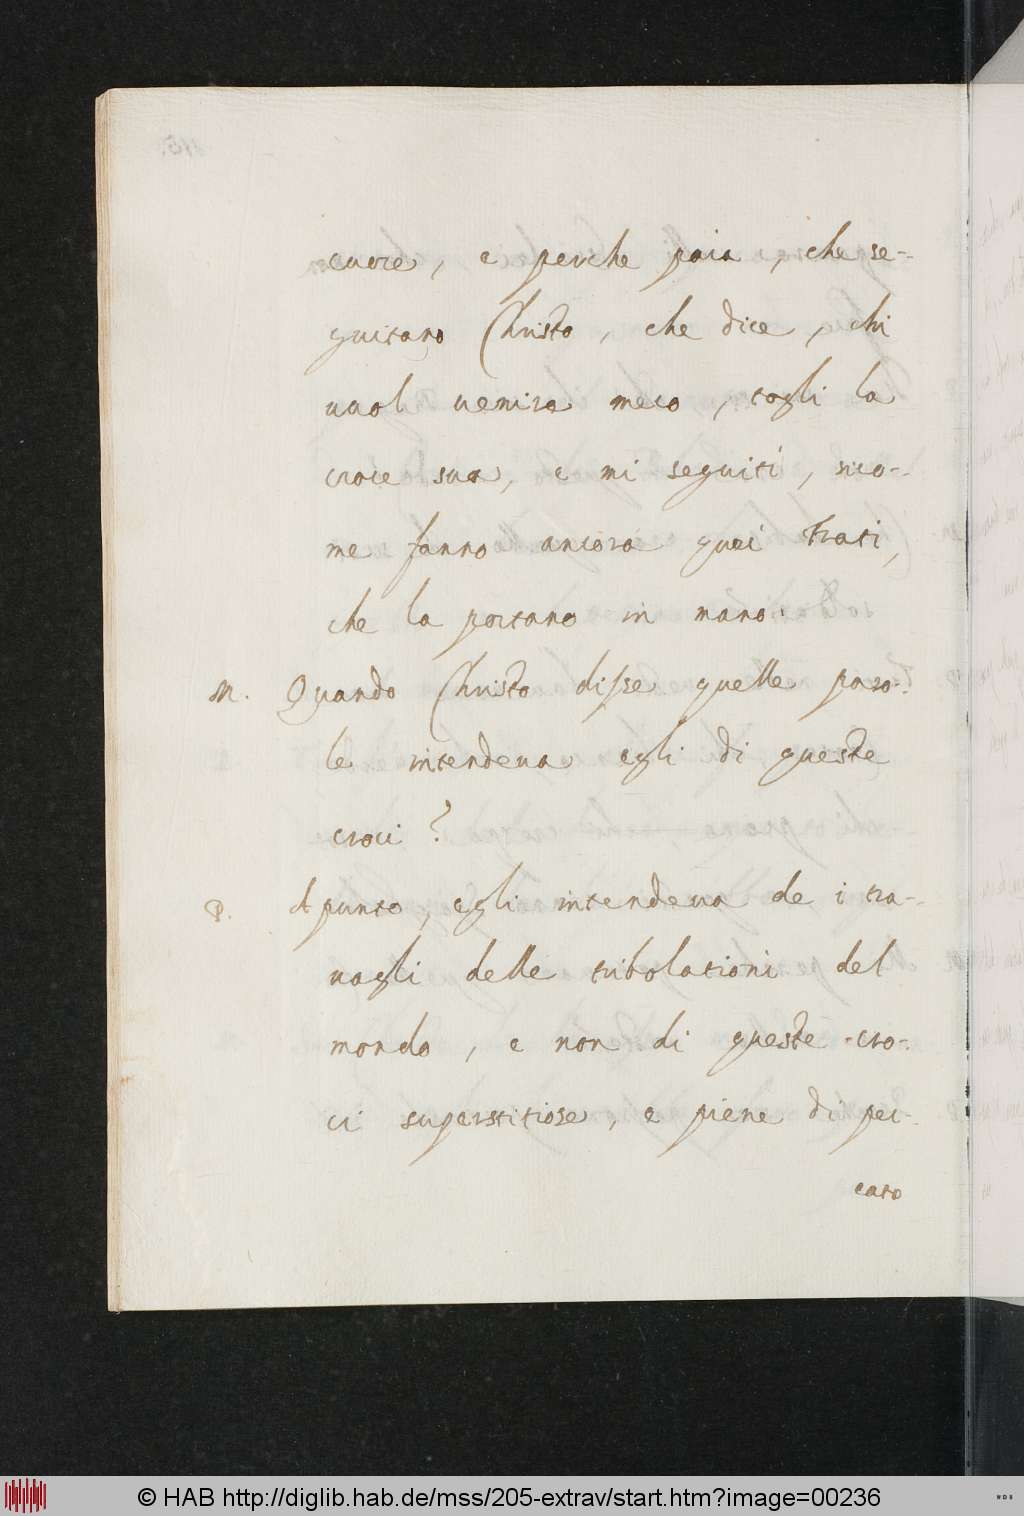 cuore, e perche paia, che se-
guitano Christo, che dice, chi
uuol uenire meco, togli la
croce sua, e mi seguiti, sico-
me fanno ancora quei frati,
che la portano in mano.
M. Quando Christo disse quelle paro-
le intendeua egli di queste
croci?
P. Apunto, egli intendeua de i tra-
uagli delle tribolationi del
mondo, e non di queste cro-
ci superstitiose, e piene di pec-
cato
© HAB http://diglib.hab.de/mss/205-extrav/start.htm?image=00236